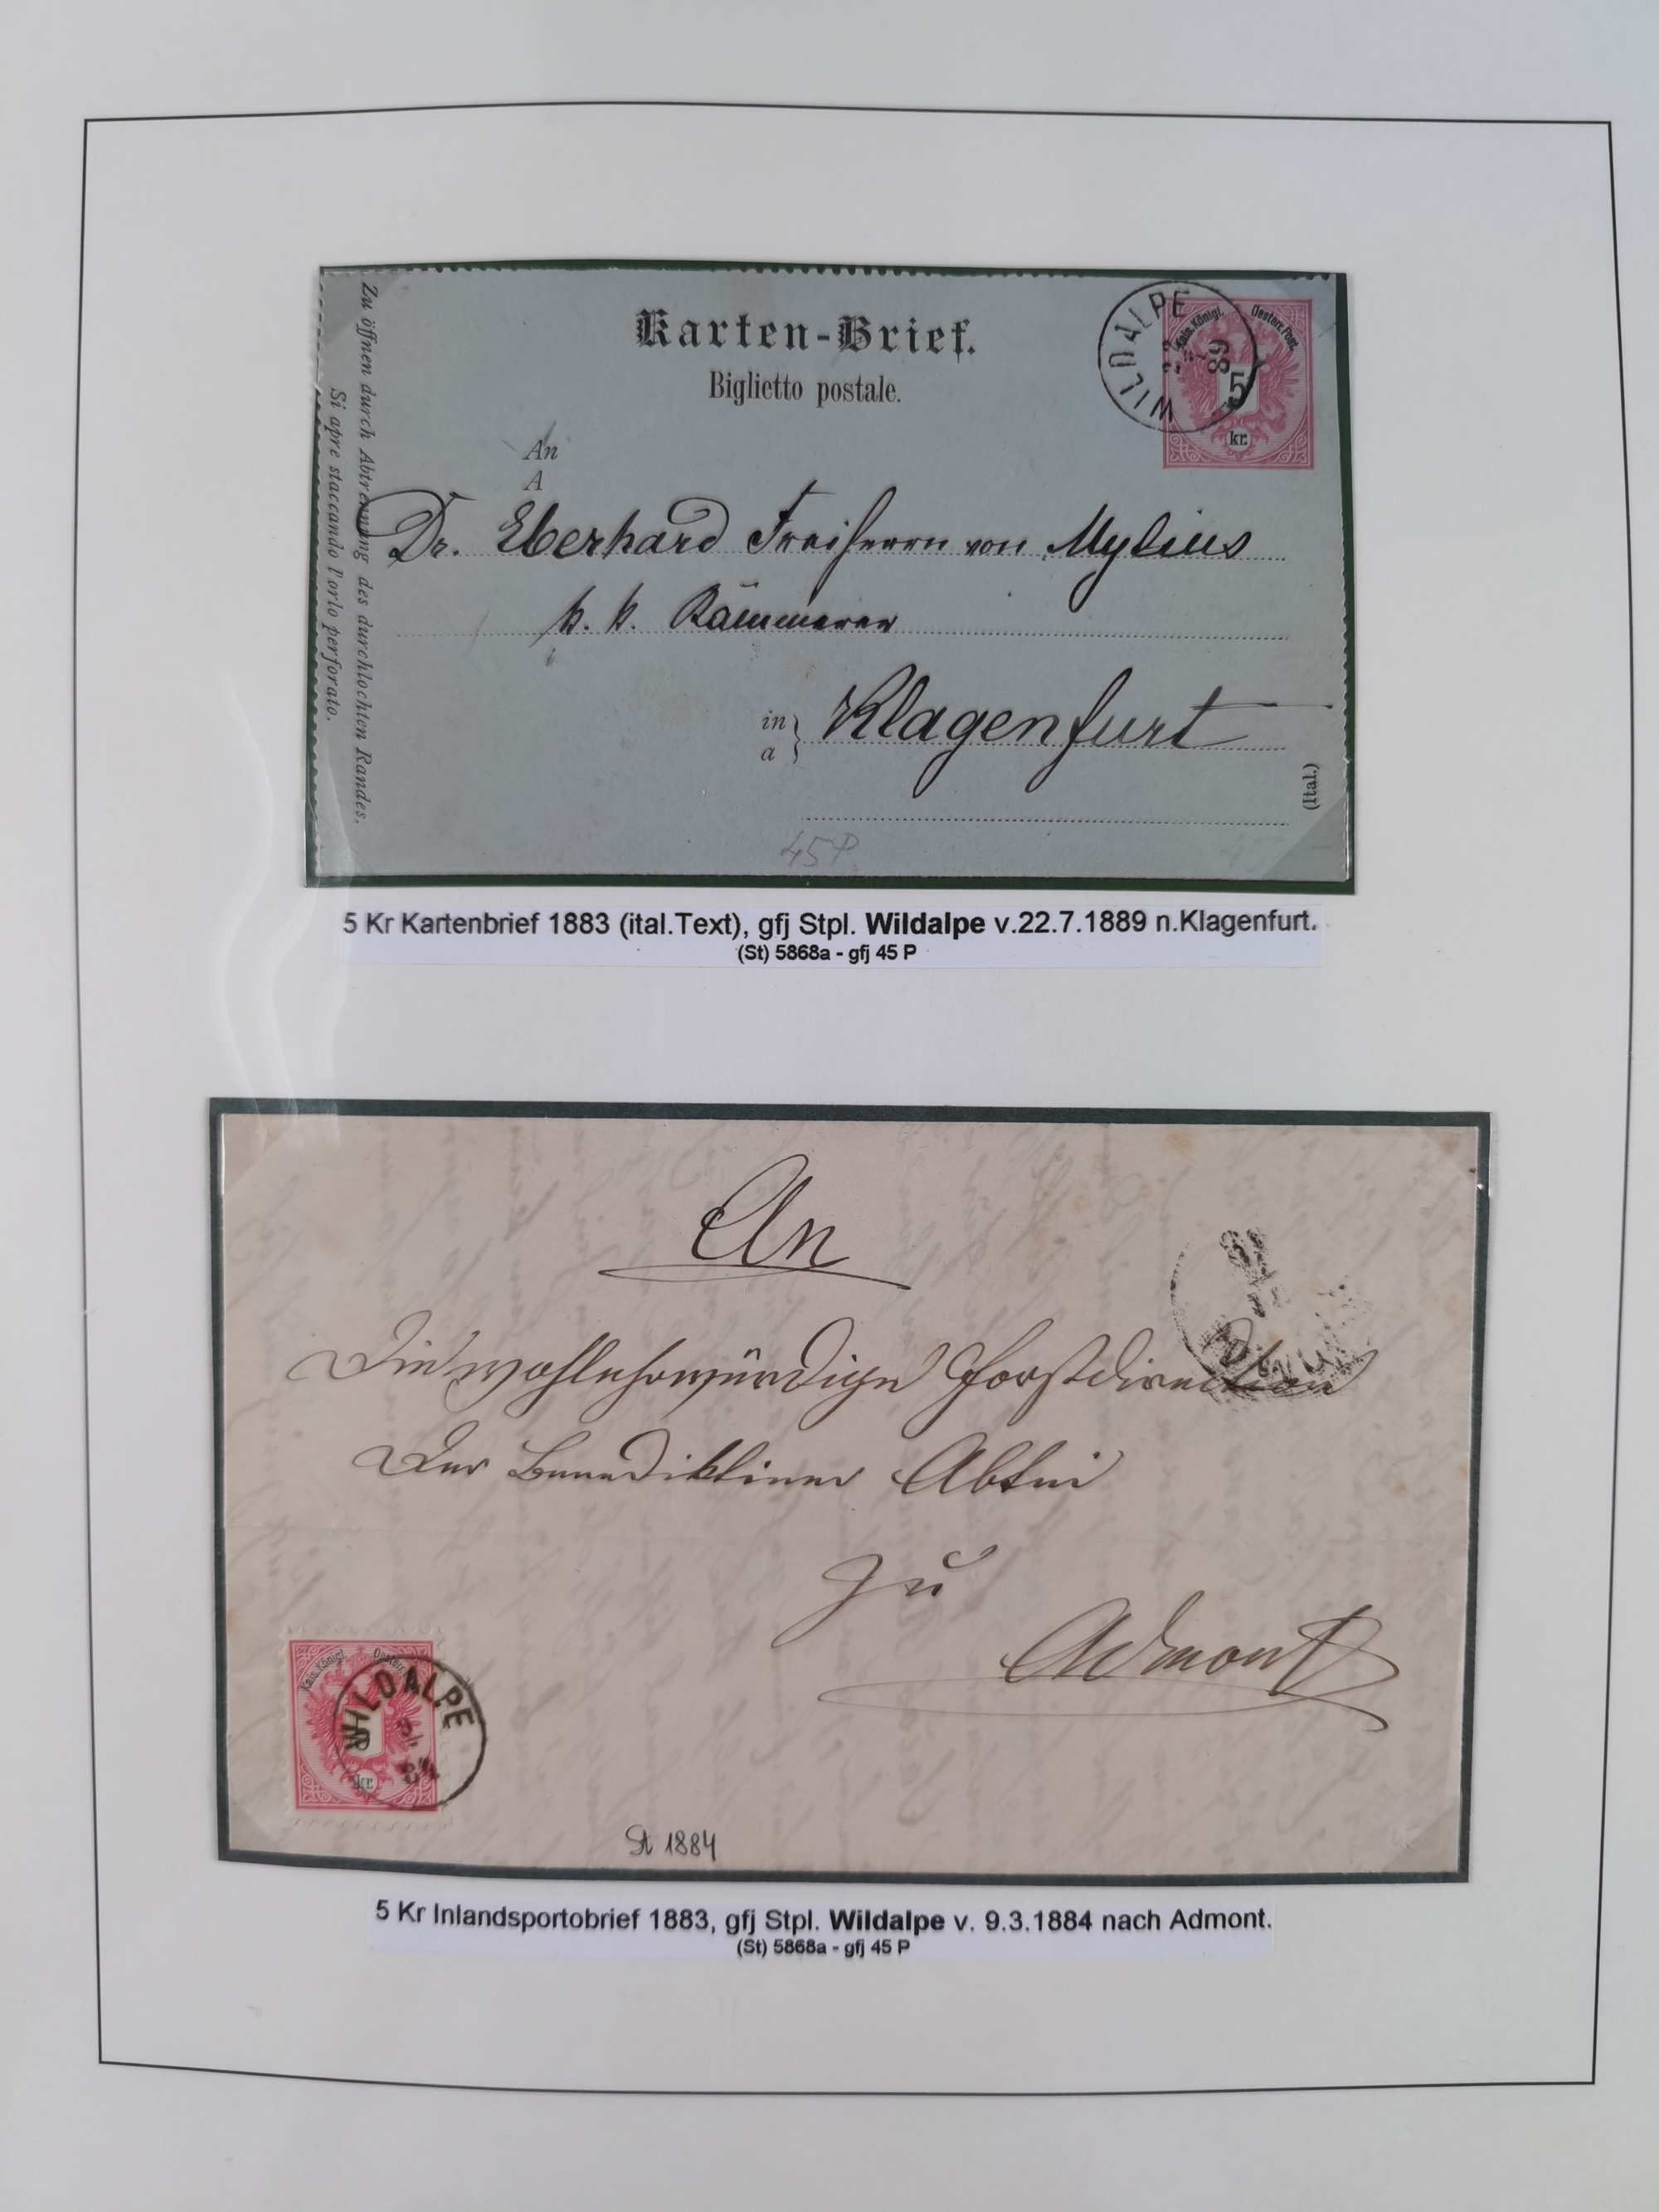 Karten-Brief.
Biglietto postale.
WILDALPE
22
7
89
Kais. Königl. Oesterr. Post.
5
kr.
Zu öffnen durch Abtrennung des durchlochten Randes.
Si apre staccando l'orlo perforato.
An
A
Dr. Eberhard Freiherrn von Mylius
k. k. Kämmerer
in
a
Klagenfurt
(Ital.)
45 P
5 Kr Kartenbrief 1883 (ital.Text), gfj Stpl. Wildalpe v.22.7.1889 n.Klagenfurt.
(St) 5868a - gfj 45 P
An
Die wohlehrwürdige Forstdirection
der Benediktiner Abtei
zu
Admont
Kais. Königl. Oesterr.
WILDALPE
9/3
84
kr.
St 1884
5 Kr Inlandsportobrief 1883, gfj Stpl. Wildalpe v. 9.3.1884 nach Admont.
(St) 5868a - gfj 45 P